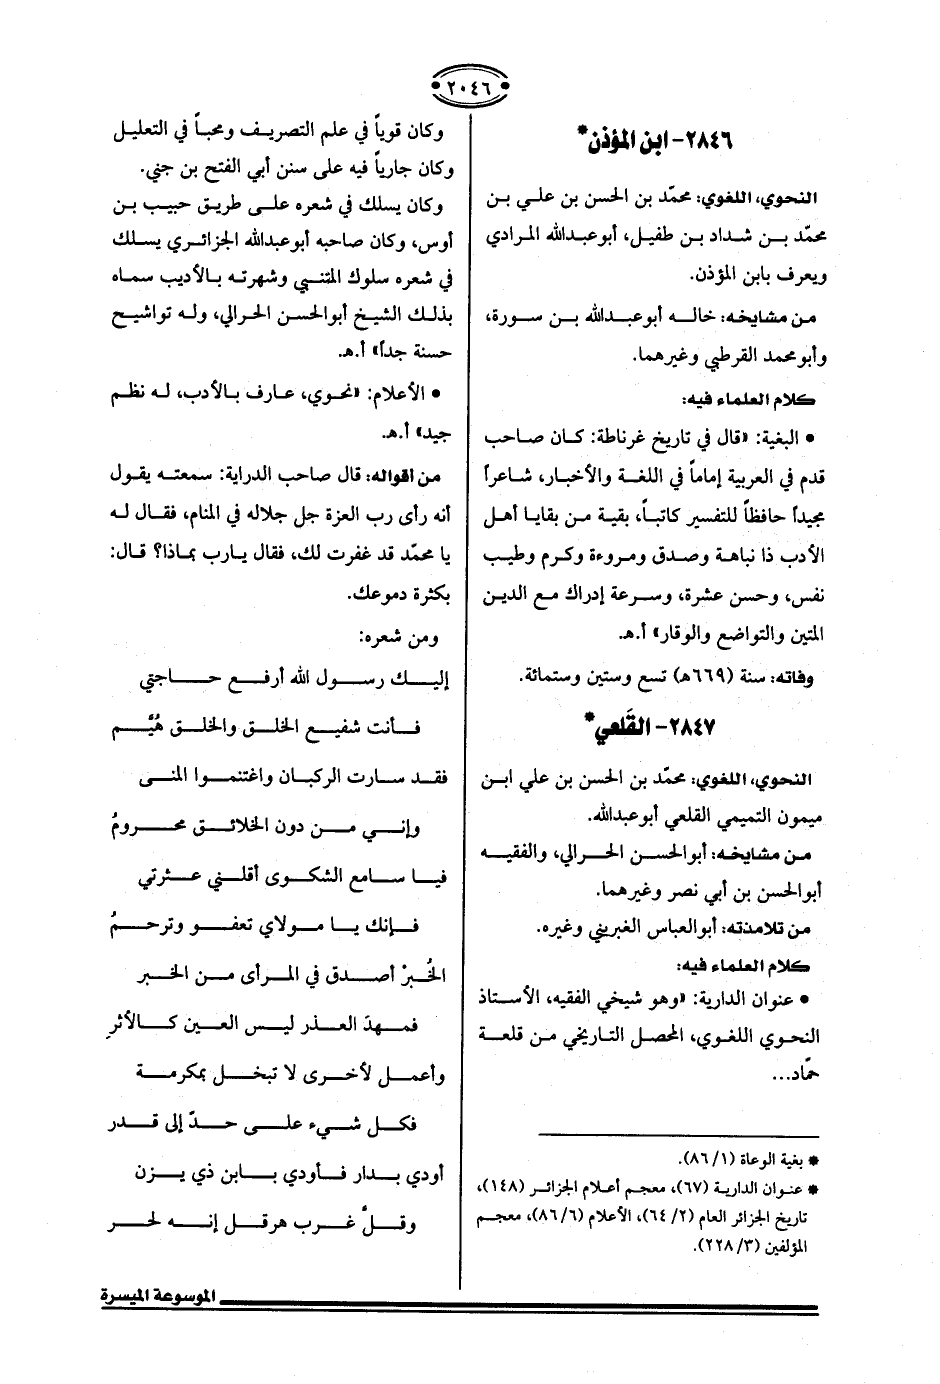 ٢٠٤٦
٢٨٤٦- ابن المؤذن*
النحوي، اللغوي: محمّد بن الحسن بن علي بن
محمّد بن شداد بن طفيل، أبو عبدالله المرادي
ويعرف بابن المؤذن.
من مشايخه: خاله أبو عبدالله بن سورة،
وأبو محمد القرطبي وغيرهما.
كلام العلماء فيه:
• البغية: «قال في تاريخ غرناطة: كان صاحب
قدم في العربية إماماً في اللغة والأخبار، شاعراً
مجيداً حافظاً للتفسير كاتباً، بقية من بقايا أهل
الأدب ذا نباهة وصدق ومروءة وكرم وطيب
نفس، وحسن عشرة، وسرعة إدراك مع الدين
المتين والتواضع والوقار» أ.هـ.
وفاته: سنة (٦٦٩هـ) تسع وستين وستمائة.
٢٨٤٧- القَلعي*
النحوي، اللغوي: محمّد بن الحسن بن علي ابن
ميمون التميمي القلعي أبو عبدالله.
من مشايخه: أبو الحسن الحرالي، والفقيه
أبو الحسن بن أبي نصر وغيرهما.
من تلامذته: أبو العباس الغبريني وغيره.
كلام العلماء فيه:
• عنوان الدارية: «وهو شيخي الفقيه، الأستاذ
النحوي اللغوي، المحصل التاريخي من قلعة
حمّاد...
* بغية الوعاة (١/ ٨٦).
* عنوان الدارية (٦٧)، معجم أعلام الجزائر (١٤٨)،
تاريخ الجزائر العام (٢/ ٦٤)، الأعلام (٦/ ٨٦)، معجم
المؤلفين (٣/ ٢٢٨).
وكان قوياً في علم التصريف ومحباً في التعليل
وكان جارياً فيه على سنن أبي الفتح بن جني.
وكان يسلك في شعره على طريق حبيب بن
أوس، وكان صاحبه أبو عبدالله الجزائري يسلك
في شعره سلوك المتنبي وشهرته بالأديب سماه
بذلك الشيخ أبو الحسن الحرالي، وله تواشيح
حسنة جداً» أ.هـ.
• الأعلام: «نحوي، عارف بالأدب، له نظم
جيد» أ.هـ.
من أقواله: قال صاحب الدراية: سمعته يقول
أنه رأى رب العزة جل جلاله في المنام، فقال له
يا محمّد قد غفرت لك، فقال يارب بماذا؟ قال:
بكثرة دموعك.
ومن شعره:
إليك رسول الله أرفع حاجتي
فأنت شفيع الخلق والخلق هُيَّم
فقد سارت الركبان واغتنموا المنى
وإني من دون الخلائق محرومُ
فيا سامع الشكوى أقلني عثرتي
فإنك يا مولاي تعفو وترحمُ
الخُبرْ أصدق في المرأى من الخبر
فمهدَ العذر ليس العين كالأثرِ
وأعمل لأخرى لا تبخل بمكرمة
فكل شيء على حدّ إلى قدر
أودي بدار فأودي بابن ذي يزن
وقلُّ غرب هرقل إنه لحر
الموسوعة الميسرة